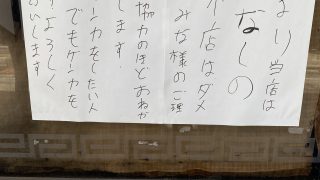 まり当店は
なしの
不店はダメ
みな様のご理
協力のほどおねが
します.
ケンカをしたい人
でもケンカを
すよろしく
いします